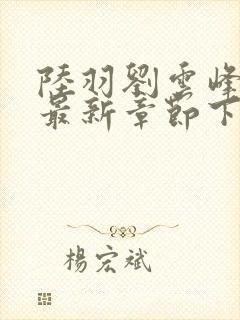 陸羽劉雲峰
最新章節下
楊宏斌